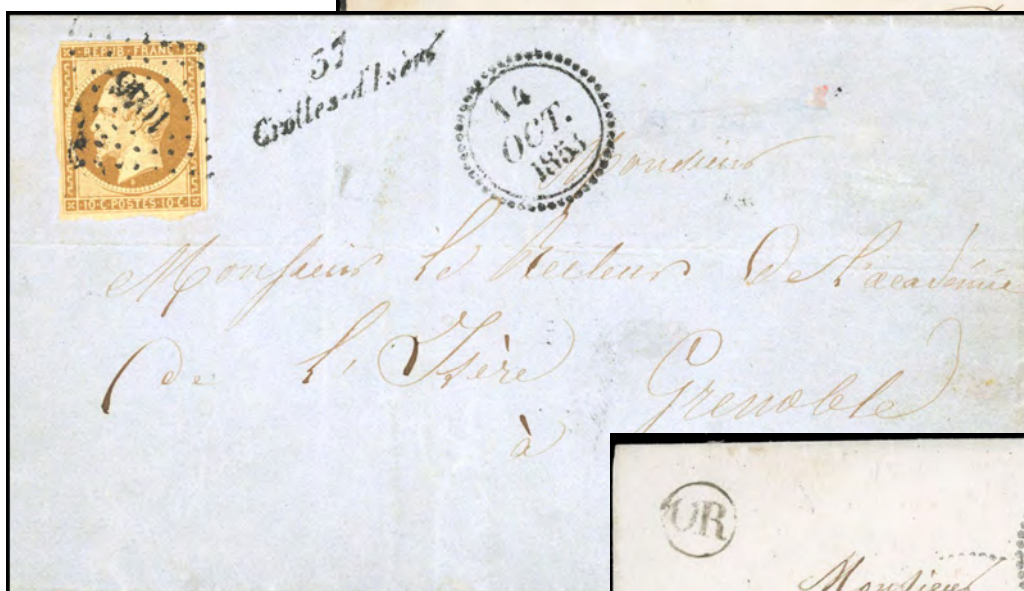 REPUB·FRANC
10·C·POSTES·10·C
57
Crolles-d'Isère
14
OCT.
1853
Monsieur
Monsieur le Recteur De l'académie
de l'Isère Grenoble
à
OR
Monsieur